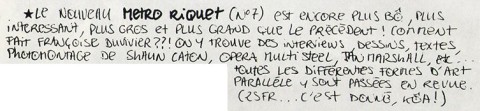 ★LE NOUVEAU METRO RIQUET (N°7) EST ENCORE PLUS BÔ, PLUS
INTERESSANT, PLUS GROS ET PLUS GRAND QUE LE PRÉCÉDENT! COMMENT
FAIT FRANÇOISE DUVIVIER??! ON Y TROUVE DES INTERVIEWS, DESSINS, TEXTES,
PHOTOMONTAGE DE SHAUN CATON, OPERA MULTI STEEL, IAN MARSHALL, ETC...
TOUTES LES DIFFÉRENTES FORMES D'ART
PARALLÈLE Y SONT PASSÉES EN REVUE.
(25FR... C'EST DONNÉ, KÔA!)